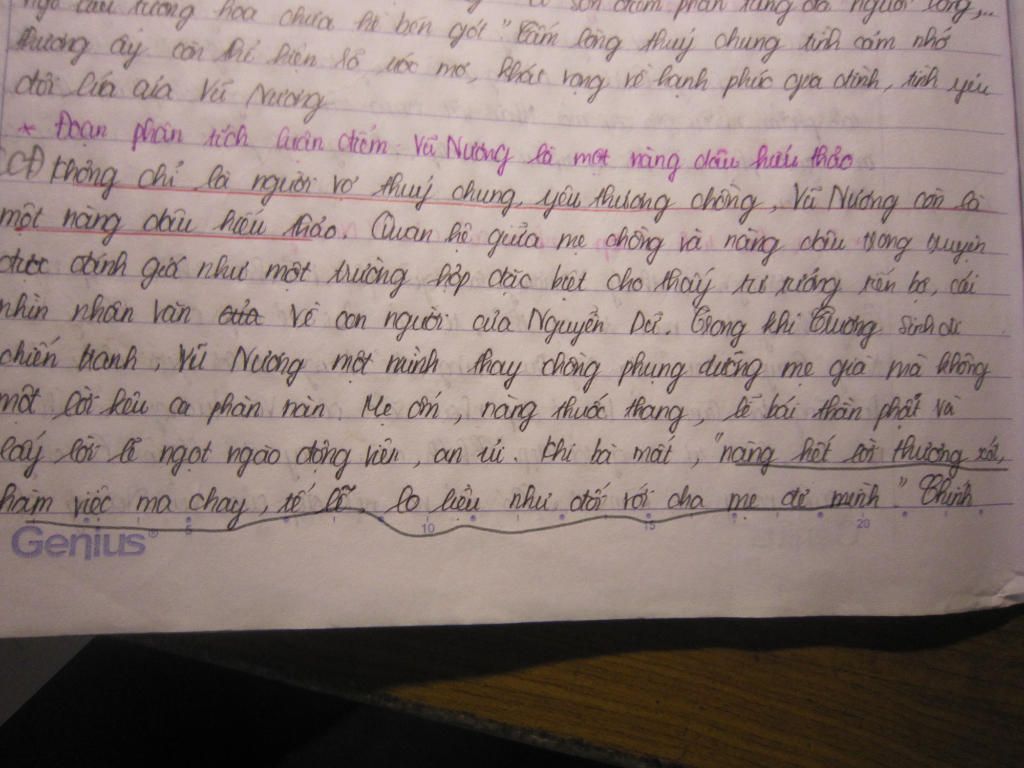 ngõ liễu tường hoa chưa hề bén gót". Tấm lòng thuỷ chung tình cảm nhớ
thương ấy còn thể hiện rõ ước mơ, khát vọng về hạnh phúc gia đình, tình yêu
đôi lứa của Vũ Nương
* Đoạn phân tích luận điểm: Vũ Nương là một nàng dâu hiếu thảo
CĐ) Không chỉ là người vợ thuỷ chung, yêu thương chồng, Vũ Nương còn là
một nàng dâu hiếu thảo. Quan hệ giữa mẹ chồng và nàng dâu trong truyện
được đánh giá như một trường hợp đặc biệt cho thấy tư tưởng tiến bộ, cái
nhìn nhân văn của về con người của Nguyễn Dữ. Trong khi Trương Sinh đi
chiến tranh, Vũ Nương một mình thay chồng phụng dưỡng mẹ già mà không
một lời kêu ca phàn nàn. Mẹ ốm, nàng thuốc thang, lễ bái thần phật và
lấy lời lẽ ngọt ngào động viên, an ủi. Khi bà mất, "nàng hết lời thương xót,
hàm việc ma chay, tế lễ, lo liệu như đối với cha mẹ đẻ mình". Chính
Genius® 5 10 15 20